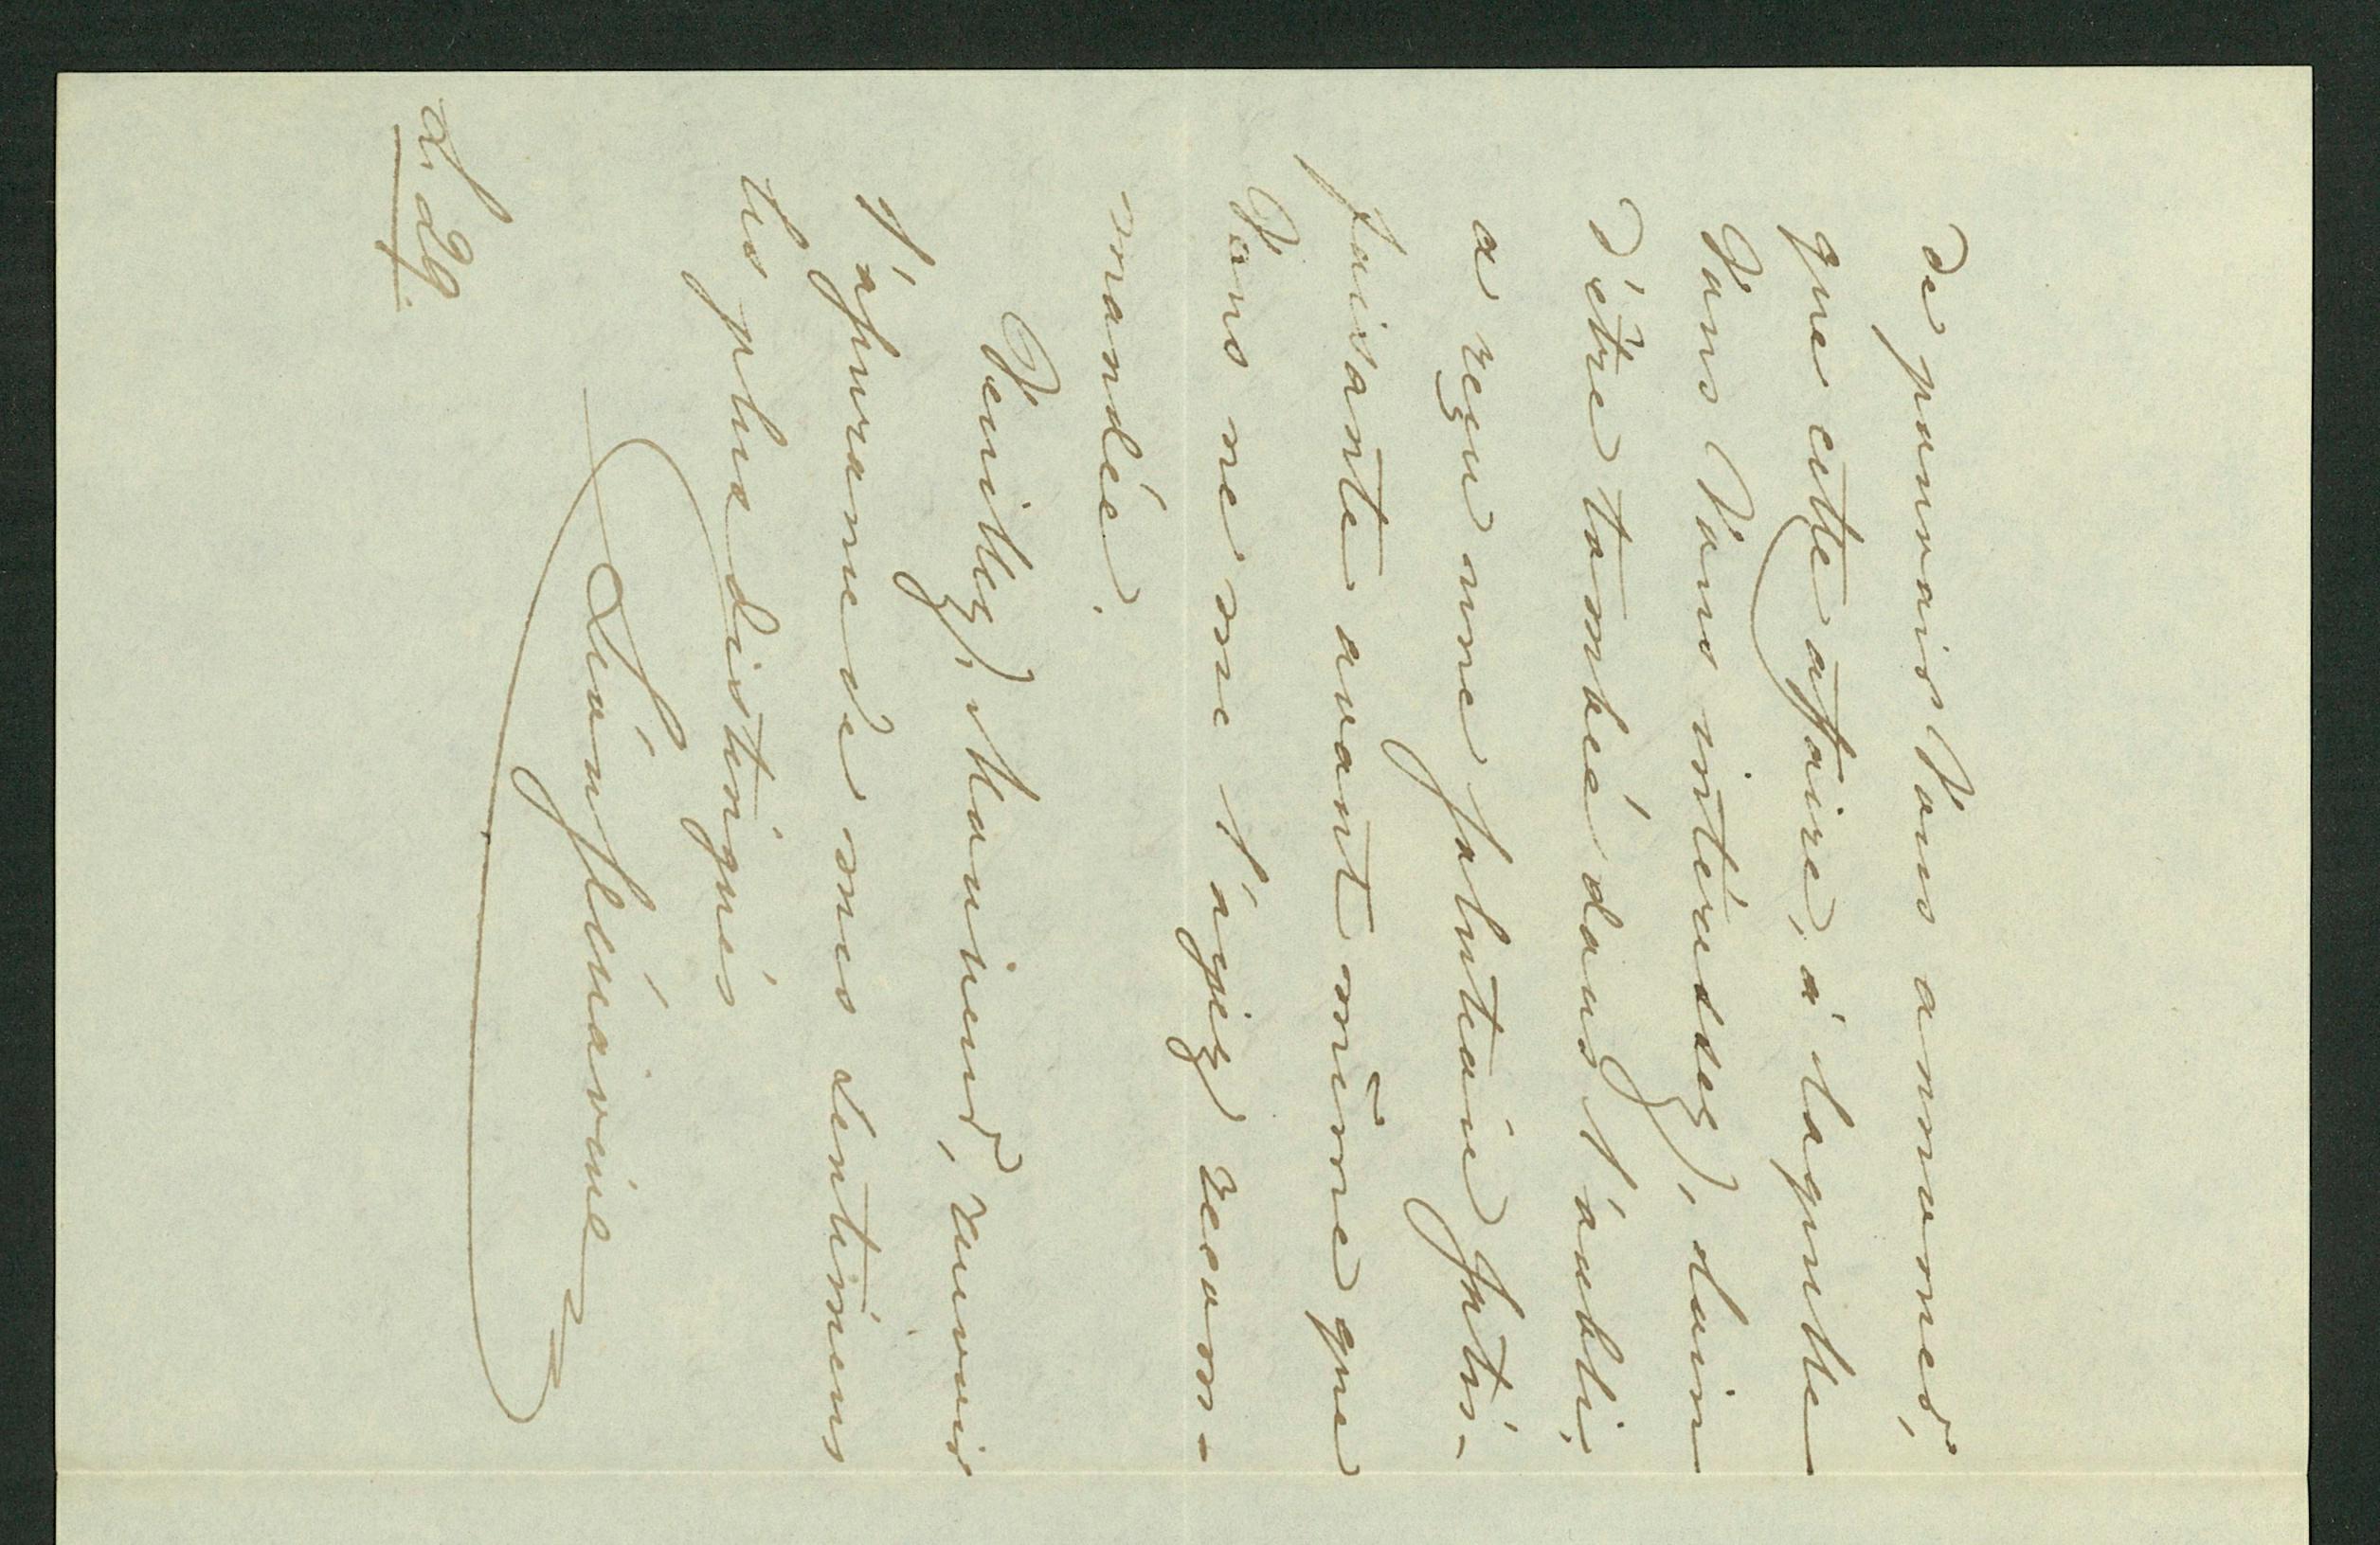 de pouvoir Vous annoncer,
que cette affaire, à laquelle
Vous Vous intéressez, loin
d'être tombée dans l'oubli,
a reçu une solution satis-
faisante avant même que
Vous ne me l'ayiez recom-
mandée.
Veuillez, Monsieur, recevoir
l'assurance de mes sentimens
les plus distingués